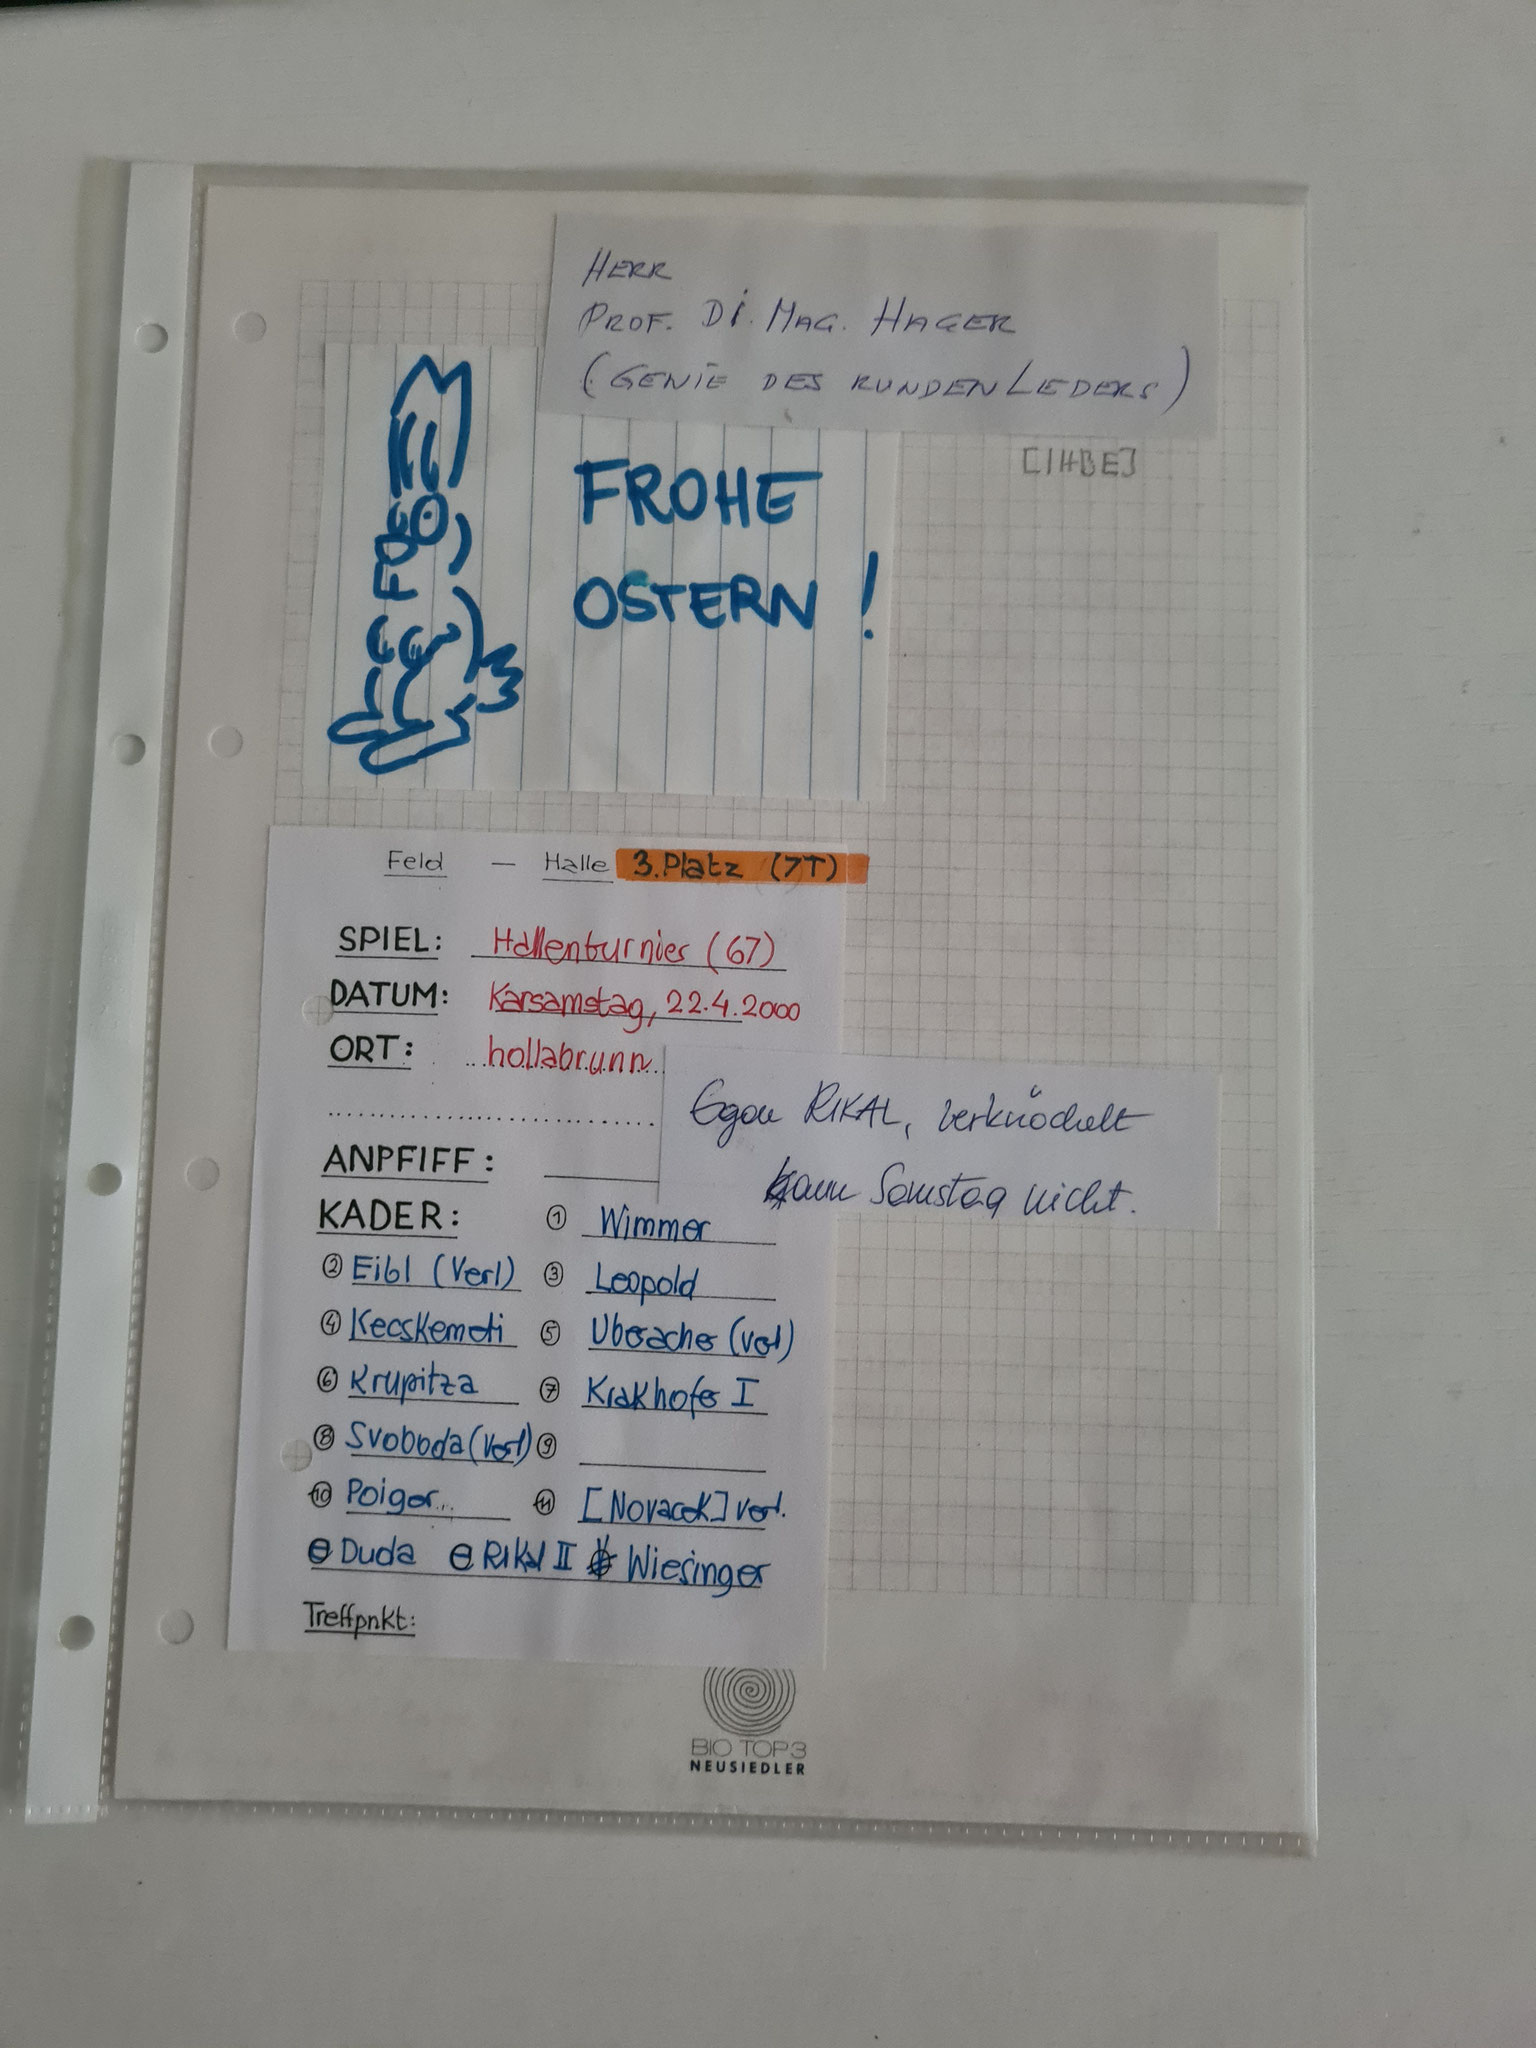 HERR
PROF. DI. MAG. HAGER
(GENIE DES RUNDEN LEDERS)
[IHBE]
FROHE
OSTERN!
Feld — Halle 3. Platz (7T)
SPIEL: Hallenturnier (67)
DATUM: Karsamstag, 22.4.2000
ORT: hollabrunn
Egon RIKAL, verknöchelt
kann Samstag nicht.
ANPFIFF:
KADER: 1 Wimmer
2 Eibl (Verl) 3 Leopold
4 Kecskemeti 5 Uberacher (verl)
6 Krupitza 7 Krakhofer I
8 Svoboda (verl) 9
10 Poiger 11 [Novacek] verl.
Duda Rikal II Wiesinger
Treffpnkt:
BIO TOP 3
NEUSIEDLER